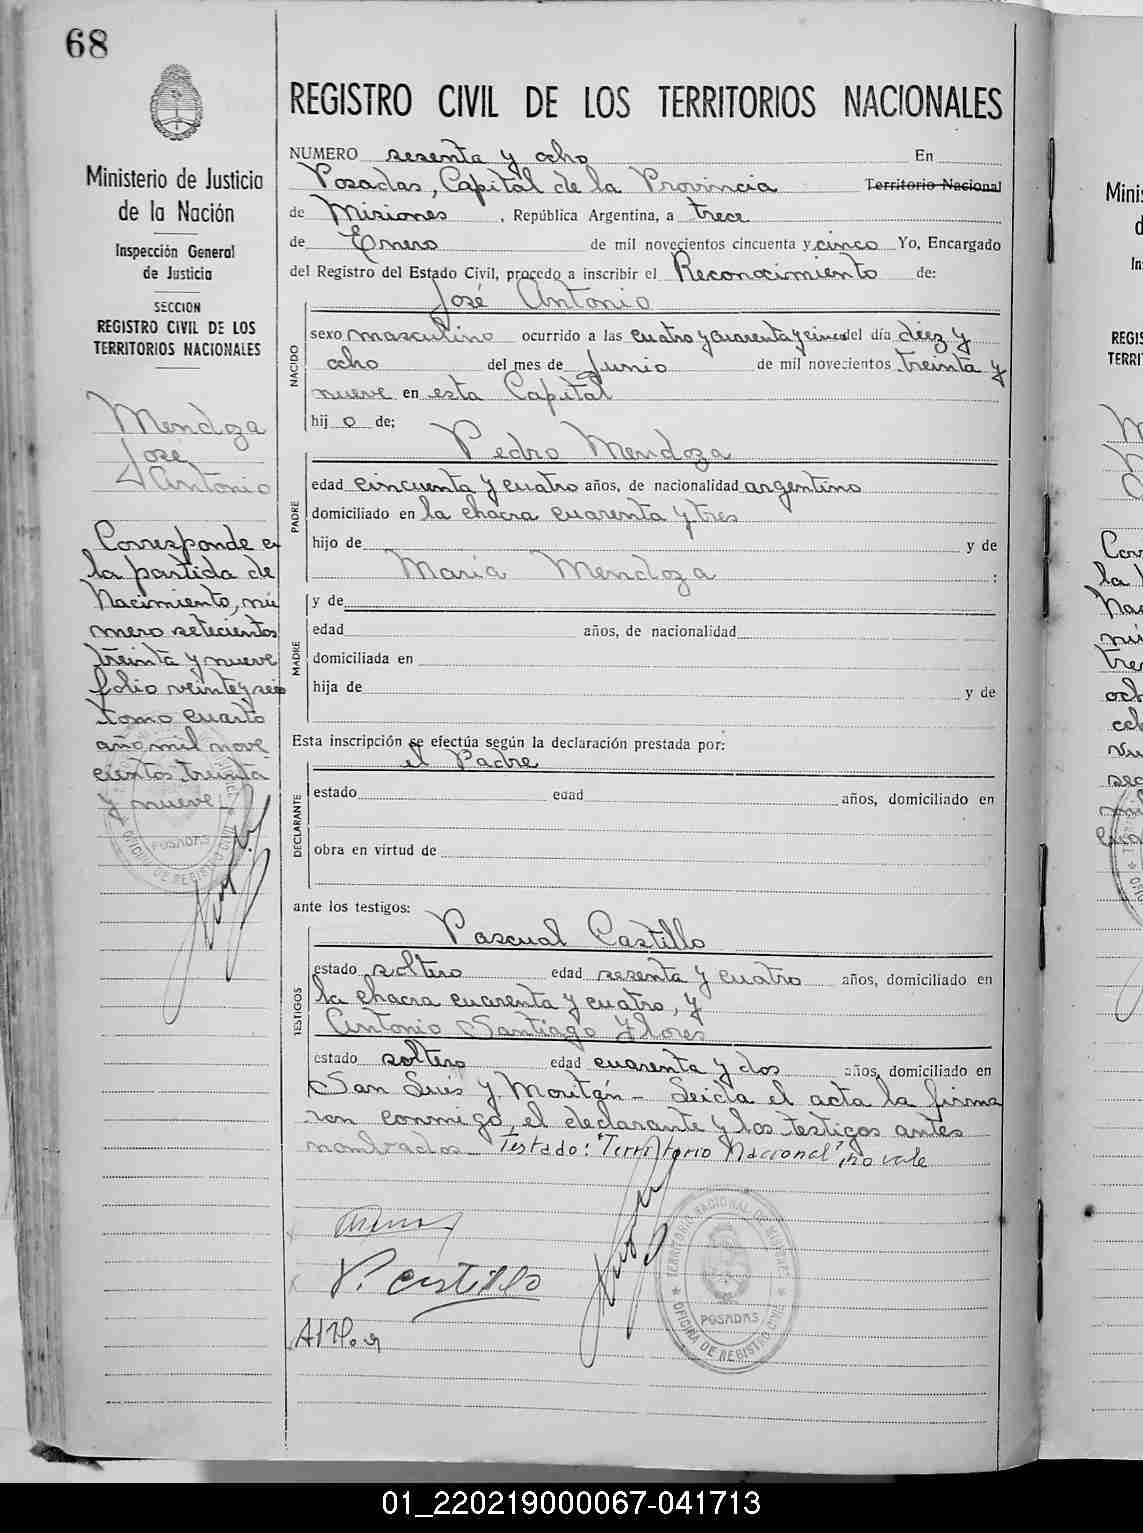 68
Ministerio de Justicia
de la Nación
Inspección General
de Justicia
SECCION
REGISTRO CIVIL DE LOS
TERRITORIOS NACIONALES
Mendoza
José
Antonio
Corresponde a
la partida de
Nacimiento, nú
mero setecientos
treinta y nueve
folio veinte y seis
tomo cuarto
año mil nove
cientos treinta
y nueve
POSADAS
OFICINA DE REGISTRO CIVIL
REGISTRO CIVIL DE LOS TERRITORIOS NACIONALES
NUMERO sesenta y ocho En
Posadas, Capital de la Provincia Territorio Nacional
de Misiones, República Argentina, a trece
de Enero de mil novecientos cincuenta y cinco Yo, Encargado
del Registro del Estado Civil, procedo a inscribir el Reconocimiento de:
José Antonio
NACIDO
sexo masculino ocurrido a las cuatro y cuarenta y cinco del día diez y
ocho del mes de Junio de mil novecientos treinta y
nueve en esta Capital
hij o de;
Pedro Mendoza
PADRE
edad cincuenta y cuatro años, de nacionalidad argentino
domiciliado en la chacra cuarenta y tres
hijo de y de
Maria Mendoza :
MADRE
y de
edad años, de nacionalidad
domiciliada en
hija de y de
Esta inscripción se efectúa según la declaración prestada por:
el Padre
DECLARANTE
estado edad años, domiciliado en
obra en virtud de
ante los testigos:
Pascual Castillo
TESTIGOS
estado soltero edad sesenta y cuatro años, domiciliado en
la chacra cuarenta y cuatro, y
Antonio Santiago Flores
estado soltero edad cuarenta y dos años, domiciliado en
San Luis y Moritán - Leida el acta la firma
ron conmigo, el declarante y los testigos antes
nombrados Testado: "Territorio Nacional", no vale
P. Castillo
TERRITORIO NACIONAL DE MISIONES
POSADAS
OFICINA DE REGISTRO CIVIL
01_220219000067-041713